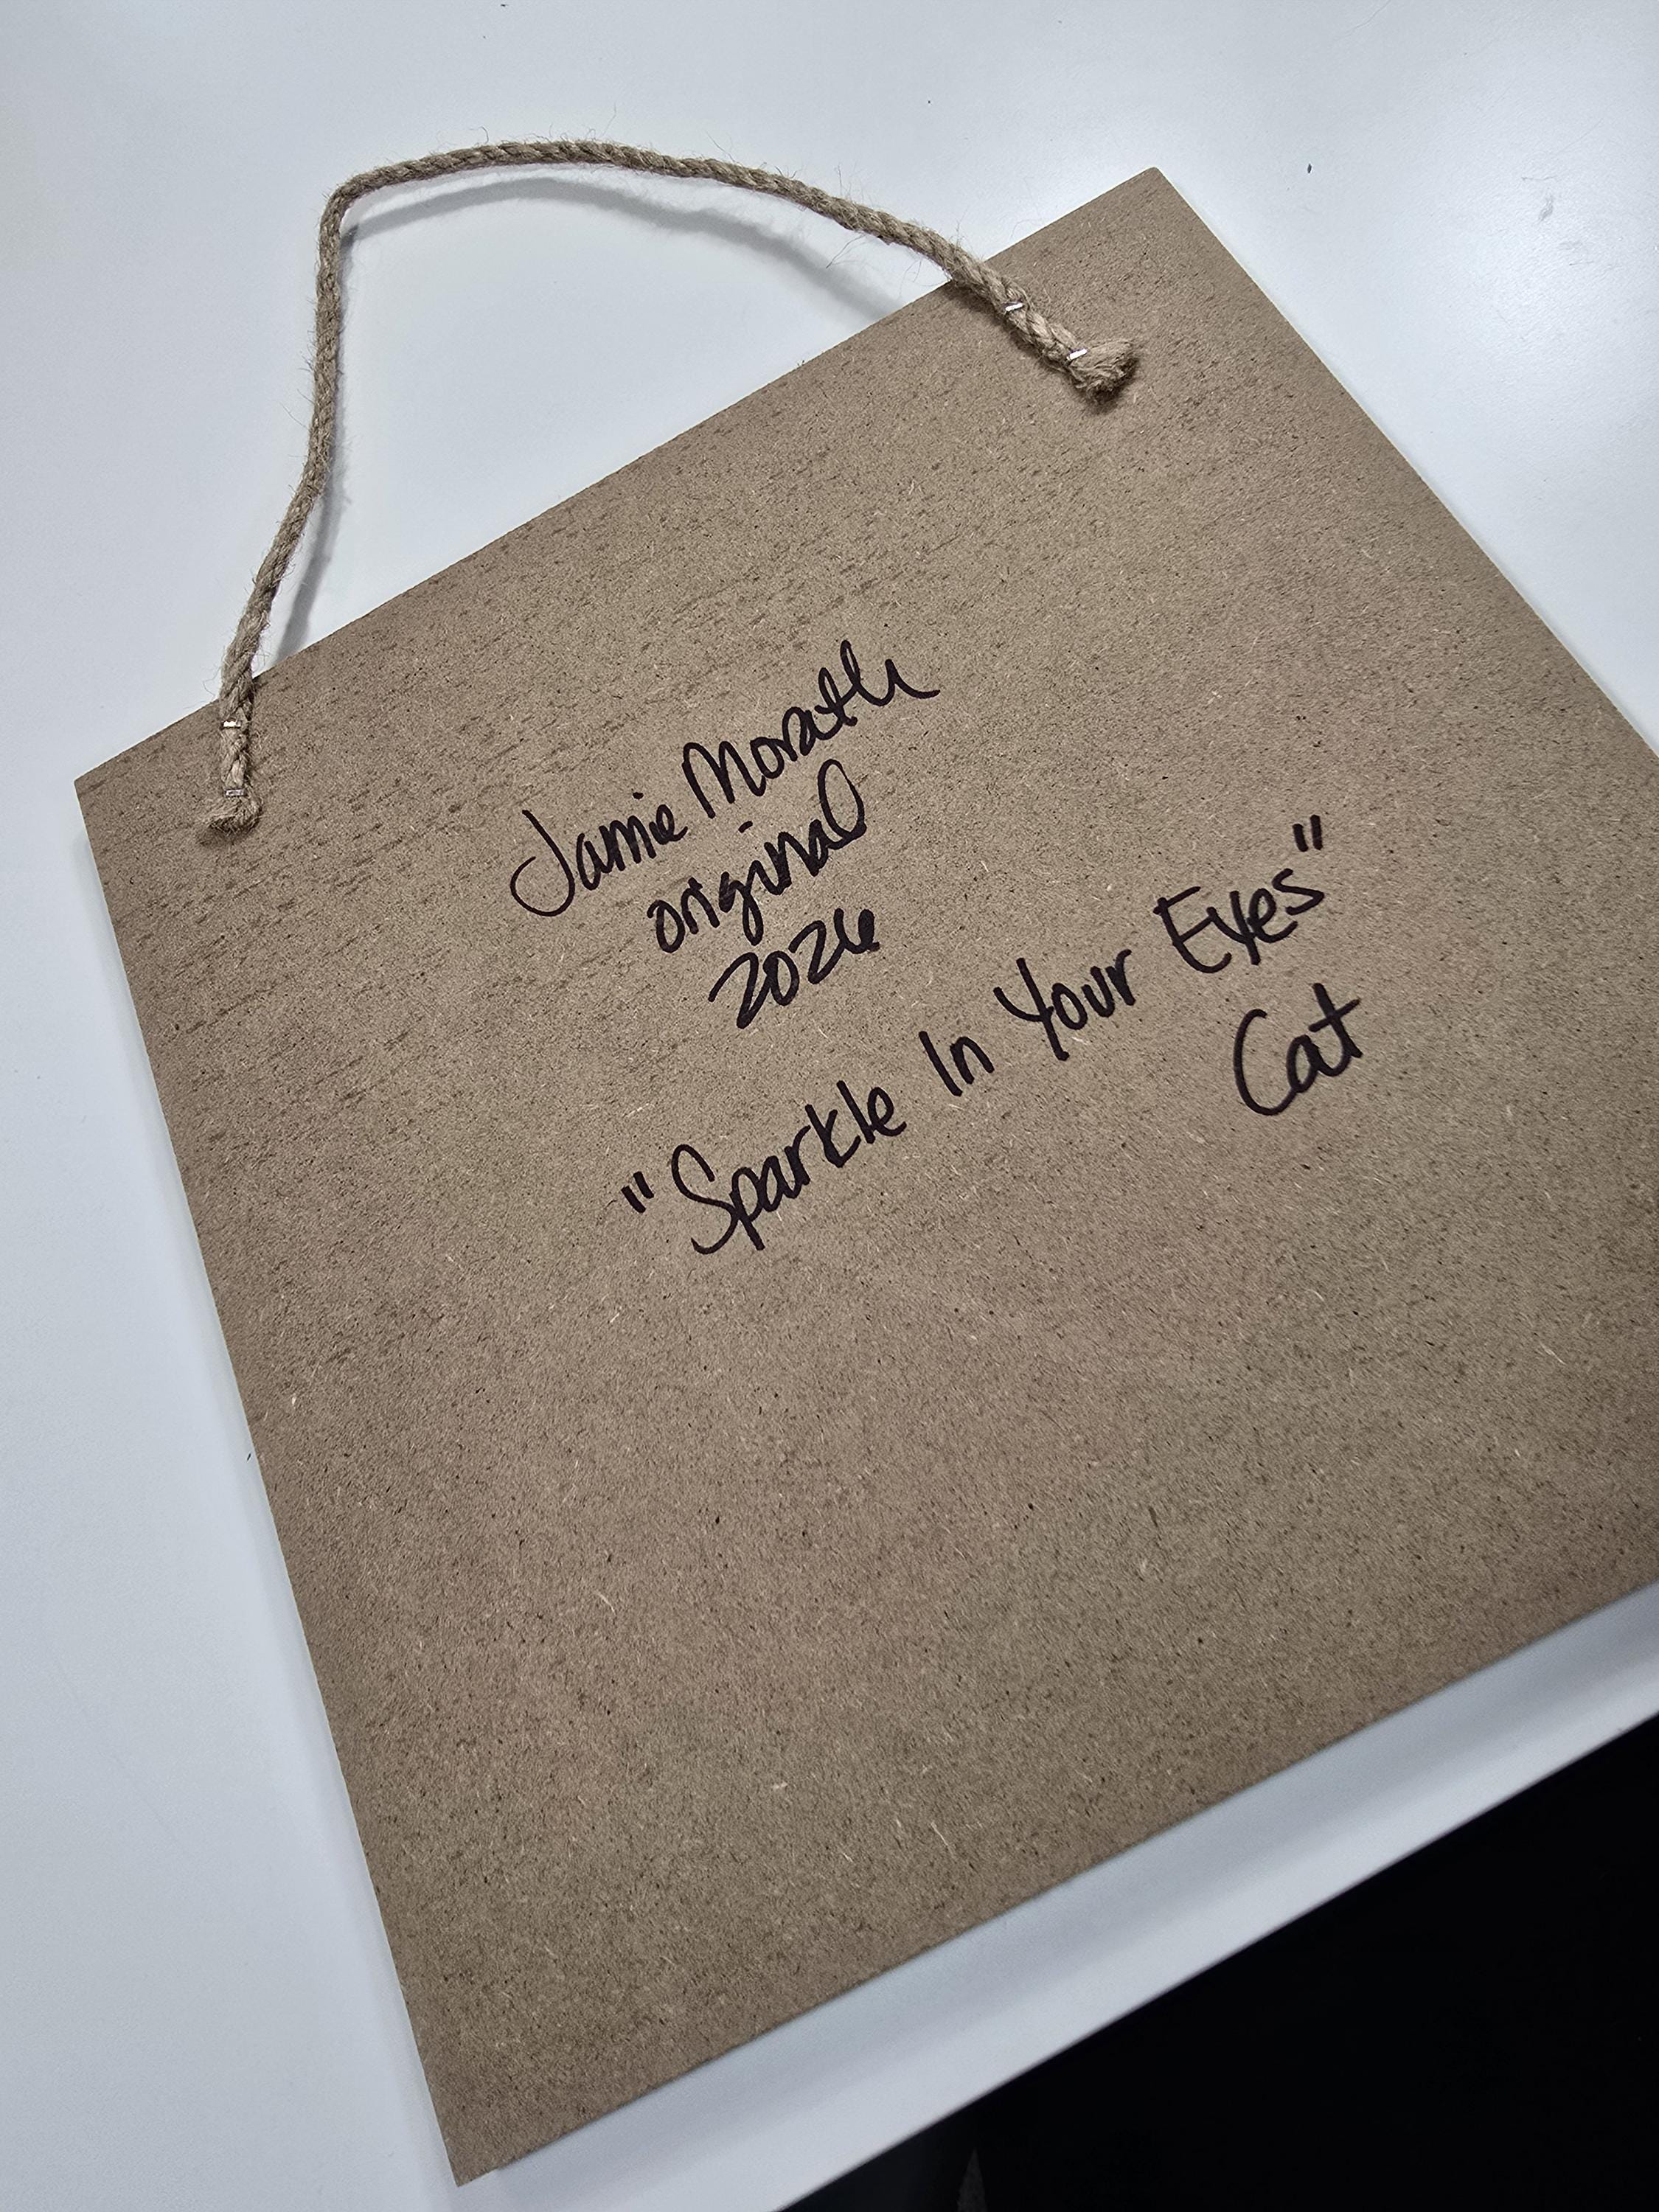 Jamie Morath
original
2026
"Sparkle In Your Eyes"
Cat